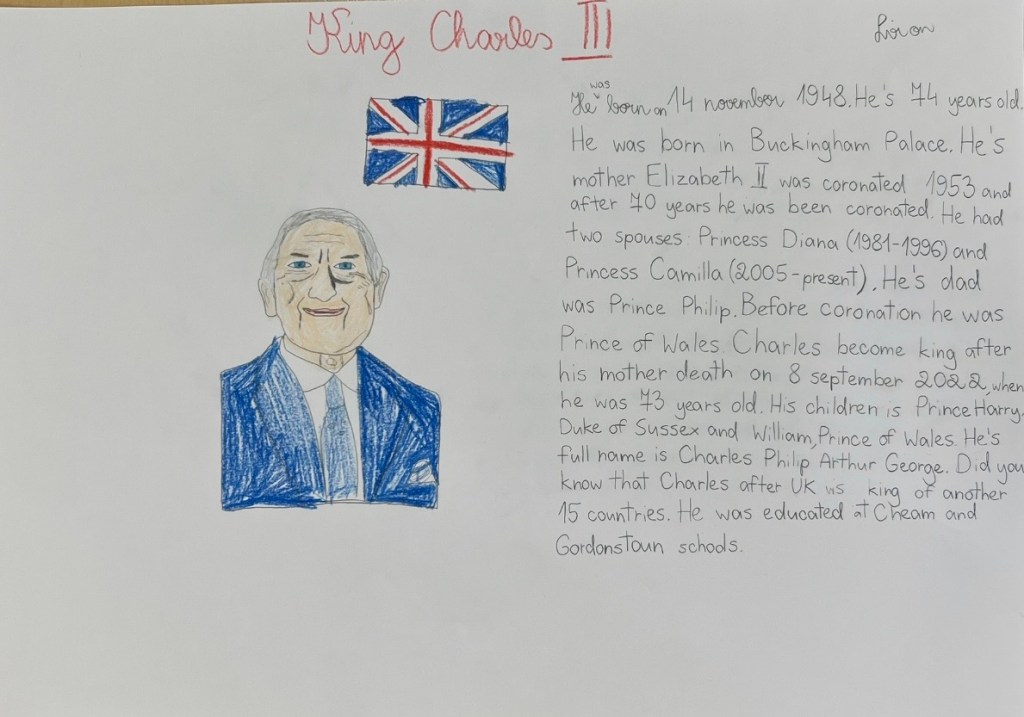 King Charles III
Liron
He was born on 14 november 1948. He's 74 years old.
He was born in Buckingham Palace. He's
mother Elizabeth II was coronated 1953 and
after 70 years he was been coronated. He had
two spouses: Princess Diana (1981-1996) and
Princess Camilla (2005-present). He's dad
was Prince Philip. Before coronation he was
Prince of Wales. Charles become king after
his mother death on 8 september 2022, when
he was 73 years old. His children is Prince Harry,
Duke of Sussex and William, Prince of Wales. He's
full name is Charles Philip Arthur George. Did you
know that Charles after UK is king of another
15 countries. He was educated at Cheam and
Gordonstoun schools.